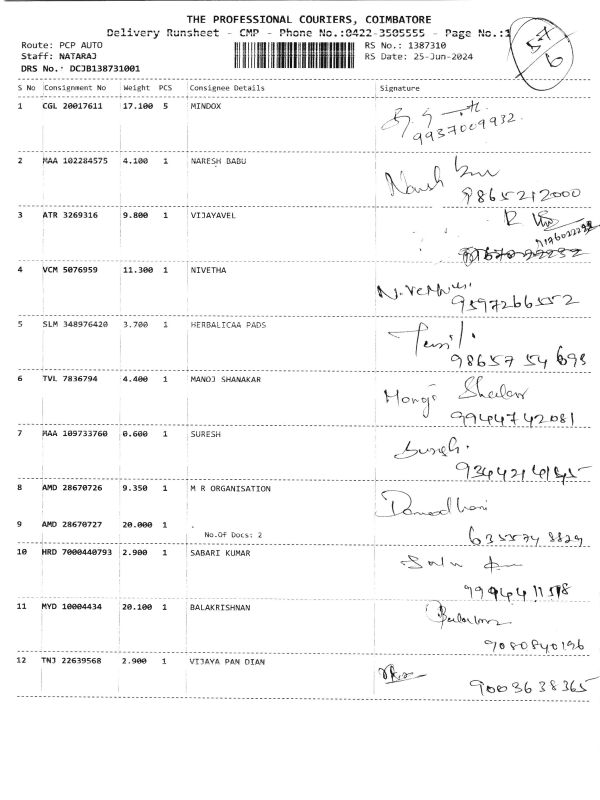 THE PROFESSIONAL COURIERS, COIMBATORE
Delivery Runsheet - CMP - Phone No.:0422-3505555 - Page No.:1
54/6
Route: PCP AUTO RS No.: 1387310
Staff: NATARAJ RS Date: 25-Jun-2024
DRS No.: DCJB138731001
S No Consignment No Weight PCS Consignee Details Signature
1 CGL 20017611 17.100 5 MINDOX
9937009932
2 MAA 102284575 4.100 1 NARESH BABU
9865212000
3 ATR 3269316 9.800 1 VIJAYAVEL
4 VCM 5076959 11.300 1 NIVETHA
9597266552
5 SLM 348976420 3.700 1 HERBALICAA PADS
98657 54 693
6 TVL 7836794 4.400 1 MANOJ SHANAKAR
9944742081
7 MAA 109733760 0.600 1 SURESH
Suresh.
8 AMD 28670726 9.350 1 M R ORGANISATION
9 AMD 28670727 20.000 1 .
No.Of Docs: 2
635574 8829
10 HRD 7000440793 2.900 1 SABARI KUMAR
11 MYD 10004434 20.100 1 BALAKRISHNAN
9080840196
12 TNJ 22639568 2.900 1 VIJAYA PAN DIAN
9003638365